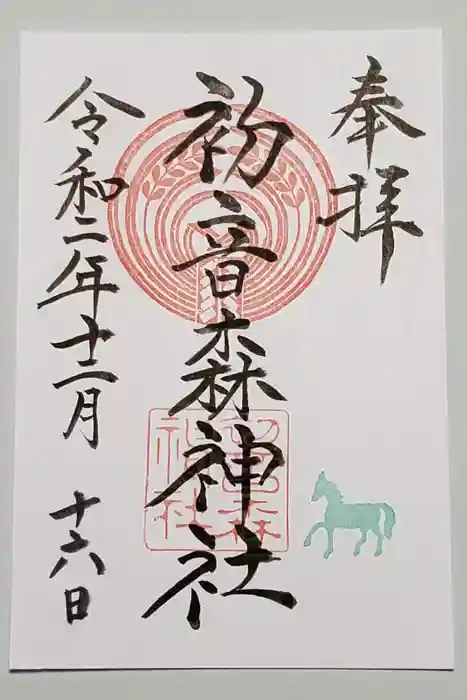 奉拝
初音森神社
令和二年十二月十六日
初音森
神社